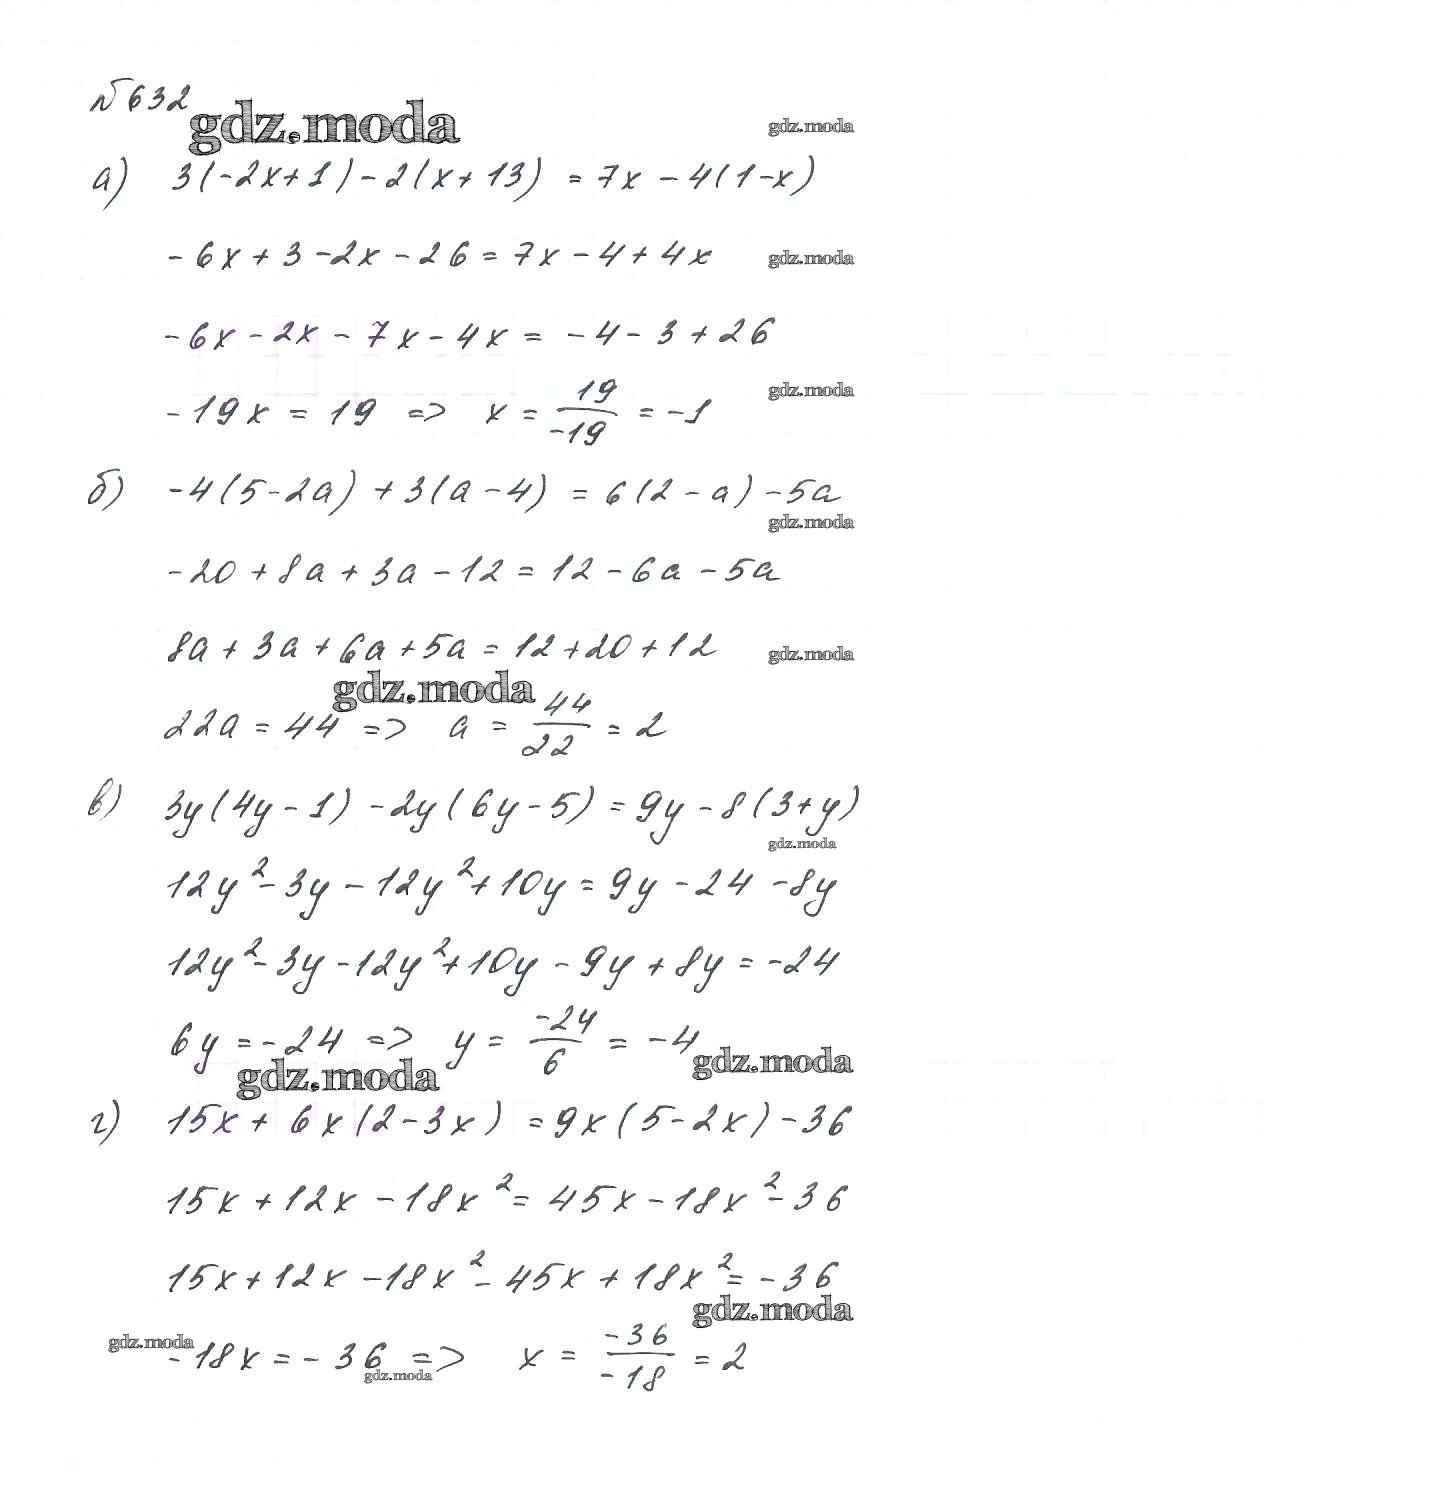 №632
gdz.moda
gdz.moda
а) 3(-2x+1)-2(x+13) = 7x-4(1-x)
-6x+3-2x-26=7x-4+4x
gdz.moda
-6x-2x-7x-4x= -4-3+26
gdz.moda
-19x = 19 => x = 19/-19 = -1
б) -4(5-2a)+3(a-4) = 6(2-a)-5a
gdz.moda
-20+8a+3a-12=12-6a-5a
8a+3a+6a+5a=12+20+12
gdz.moda
gdz.moda
22a=44 => a = 44/22 = 2
в) 3y(4y-1)-2y(6y-5)=9y-8(3+y)
gdz.moda
12y²-3y-12y²+10y=9y-24-8y
12y²-3y-12y²+10y-9y+8y=-24
6y=-24 => y = -24/6 = -4
gdz.moda
gdz.moda
г) 15x+6x(2-3x) =9x(5-2x)-36
15x+12x-18x²= 45x-18x²-36
15x+12x-18x²-45x+18x²= -36
gdz.moda
gdz.moda
-18x=-36 => x = -36/-18 = 2
gdz.moda